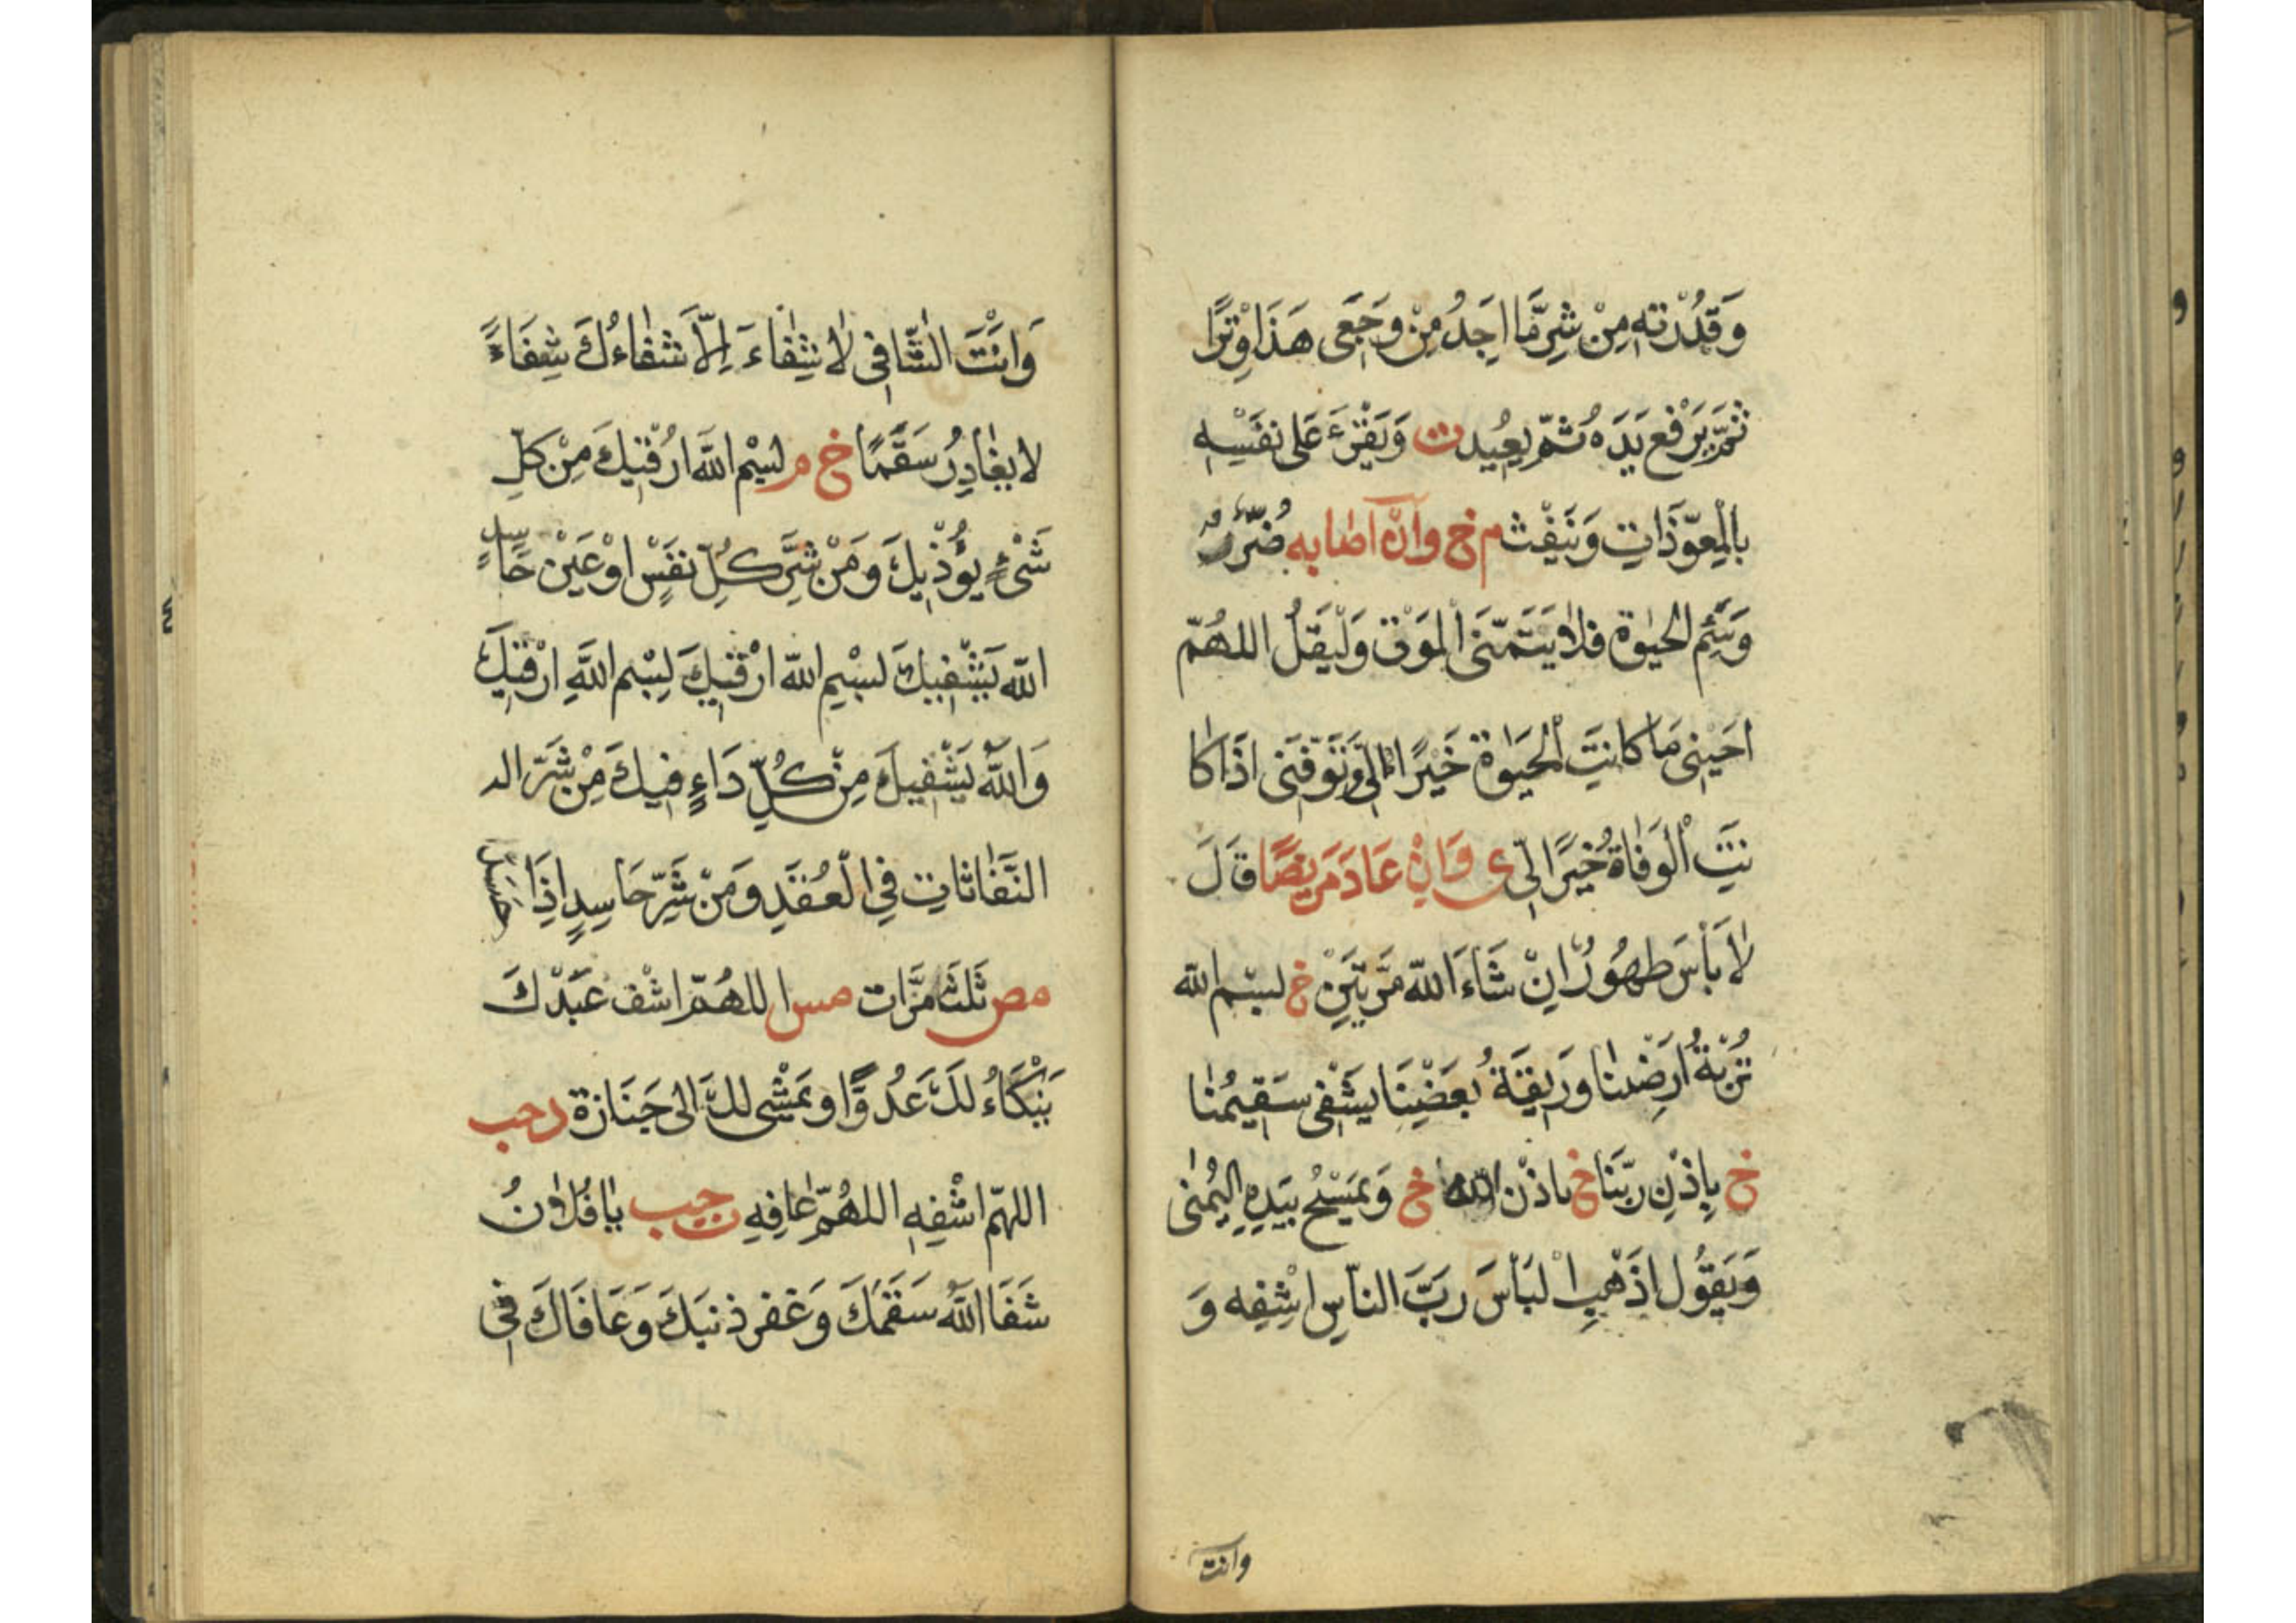 وَقُدْرَتِهِ مِنْ شَرِّ مَا اَجِدُ مِنْ وَجَعِى هَذَا وِتْرًا
ثُمَّ يَرْفَع يَدَهُ ثُمّ يعُيد ت وَيَقْرَءَ عَلى نفَسْهِ
بالْمعَوّذَاتِ وَيَنْفِث م خ وَاَنْ اَصَابه ضُرّ
وَسَئِمَ الحيٰوة فلَا يَتَمَنّىَ الْمَوَت وَلْيَقُلْ اللهُمّ
احَيْنِى مَا كانتَ الْحيَوٰة خَيْرًا لِى وَتَوَفَّنِى اذَا كَا
نَتَ الْوَفَاةُ خَيرًا لِّى ى وَاِنْ عَادَ مَرِيضًا قَالَ
لَا بَأْسَ طهُورٌ اِنْ شَاءَ اللهّ مَرّتَيَنِ خ لبسْم الله
تُرْبَةُ اَرضِنا وَرِيقَةُ بعَضْنِاَ يشْفَى سَقيمُنا
خ بِاِذْنِ رَبّنَا خ باذْن الله خ وَيَمْسَحُ بيَدِهِ اليُمْنٰى
وَيَقُول اذَهْبِ الْبَأسَ رَبَّ الناّسِ اشْفِهِ وَ
وانت
وَاَنْتَ الشّٰافِى لاٰ شِفٰاءَ اِلاَّ شَفٰاءُكَ شِفَاءً
لا يغُادِرُ سَقَمًا خ م لبِسْمِ اللهَّ اَرُقْيكَ مِنْ كلّ
شَىْءٍ يؤُذْيِكَ وَمَنْ شَرَّ كُلِّ نفَسٍ اوْ عَيَنْ حَاسِدٍ
اللهّ يَشْفِيكَ لبسْمِ اللهّ ارْقيكَ لبِسْم اللهَّ ارْقيكَ
وَاللهَّ يَشْفِيكَ مِنْ كُلِّ دَاءٍ فيِكَ مِنْ شَرّ الد
النَّفّاثاتِ فىِ الْعُقَدِ وَمَنْ شَرِّ حَاسِدٍ اِذَا حَسَدَ
مص ثَلثَ مَرَّات مس اللهُمّ اشْف عَبَدْكَ
يَنْكَاءُ لَكَ عَدُوًّا وَيَمْشِى لَكَ الى جَنَازة د حب
اللهّم اشْفِهِ اللهُمّ عَافِهِ ت حب يا فُلاٰنُ
شَفَا اللهُّ سَقَمَكَ وَغفر ذنبَكَ وَعَافَاكَ فىِ